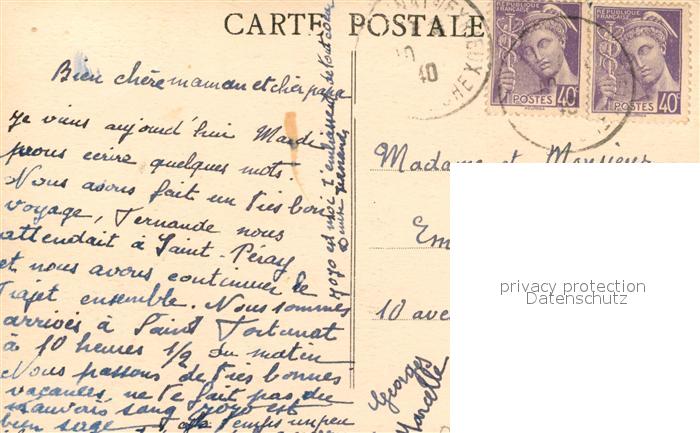 CARTE POSTALE
Bien chère maman et cher papa
Je viens aujourd'hui Mardi
vous écrire quelques mots.
Nous avons fait un très bon
voyage, Fernande nous
attendait à Saint-Péray
et nous avons continuer le
trajet ensemble. Nous sommes
arrivés à Saint Fortunat
à 10 heures 1/2 du matin
Nous passons de très bonnes
vacances, ne te fait pas du
mauvais sang Jojo est
bien sage
temps un peu
Jojo et moi t'embrassent de tout cœur
Georges
Marcelle
40
RÉPUBLIQUE FRANÇAISE
POSTES 40c
RÉPUBLIQUE FRANÇAISE
POSTES 40c
Madame et Monsieur
Em
10 ave
privacy protection
Datenschutz